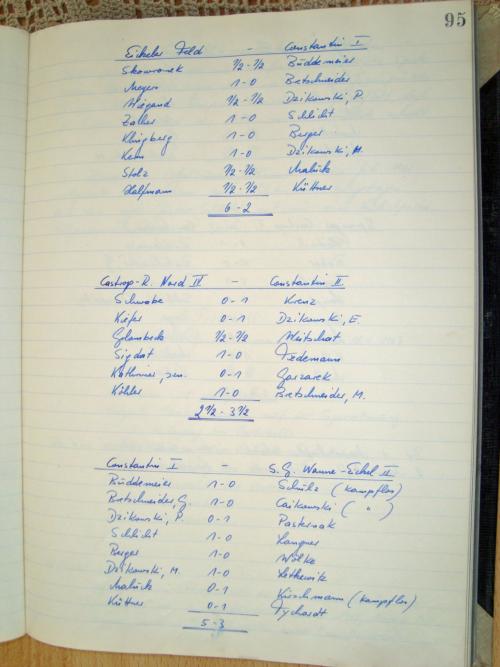 95
Eickeler Feld - Constantin I
Skowronek 1/2-1/2 Büddemeier
Meyer 1-0 Bretschneider
Wiegand 1/2-1/2 Dzikowski, P.
Zoller 1-0 Schlicht
Klingberg 1-0 Berger
Kern 1-0 Dzikowski, M.
Stolz 1/2-1/2 Malück
Halfmann 1/2-1/2 Küttner
6-2
Castrop-R. Nord IV - Constantin II
Schwabe 0-1 Krenz
Kiefer 0-1 Dzikowski, E.
1/2-1/2
Sigdat 1-0 Tiedemann
sen. 0-1 Garzarek
Köhler 1-0 Bretschneider, M.
2 1/2 - 3 1/2
Constantin I - S.G. Wanne-Eickel II
Büddemeier 1-0 Schulz (kampflos)
Bretschneider, G. 1-0 Caikowski ( " )
Dzikowski, P. 0-1 Pasternak
Schlicht 1-0 Langner
Berger 1-0 Wölke
Dzikowski, M. 1-0
Malück 0-1 Kirschmann (kampflos)
Küttner 0-1 Tychardt
5-3